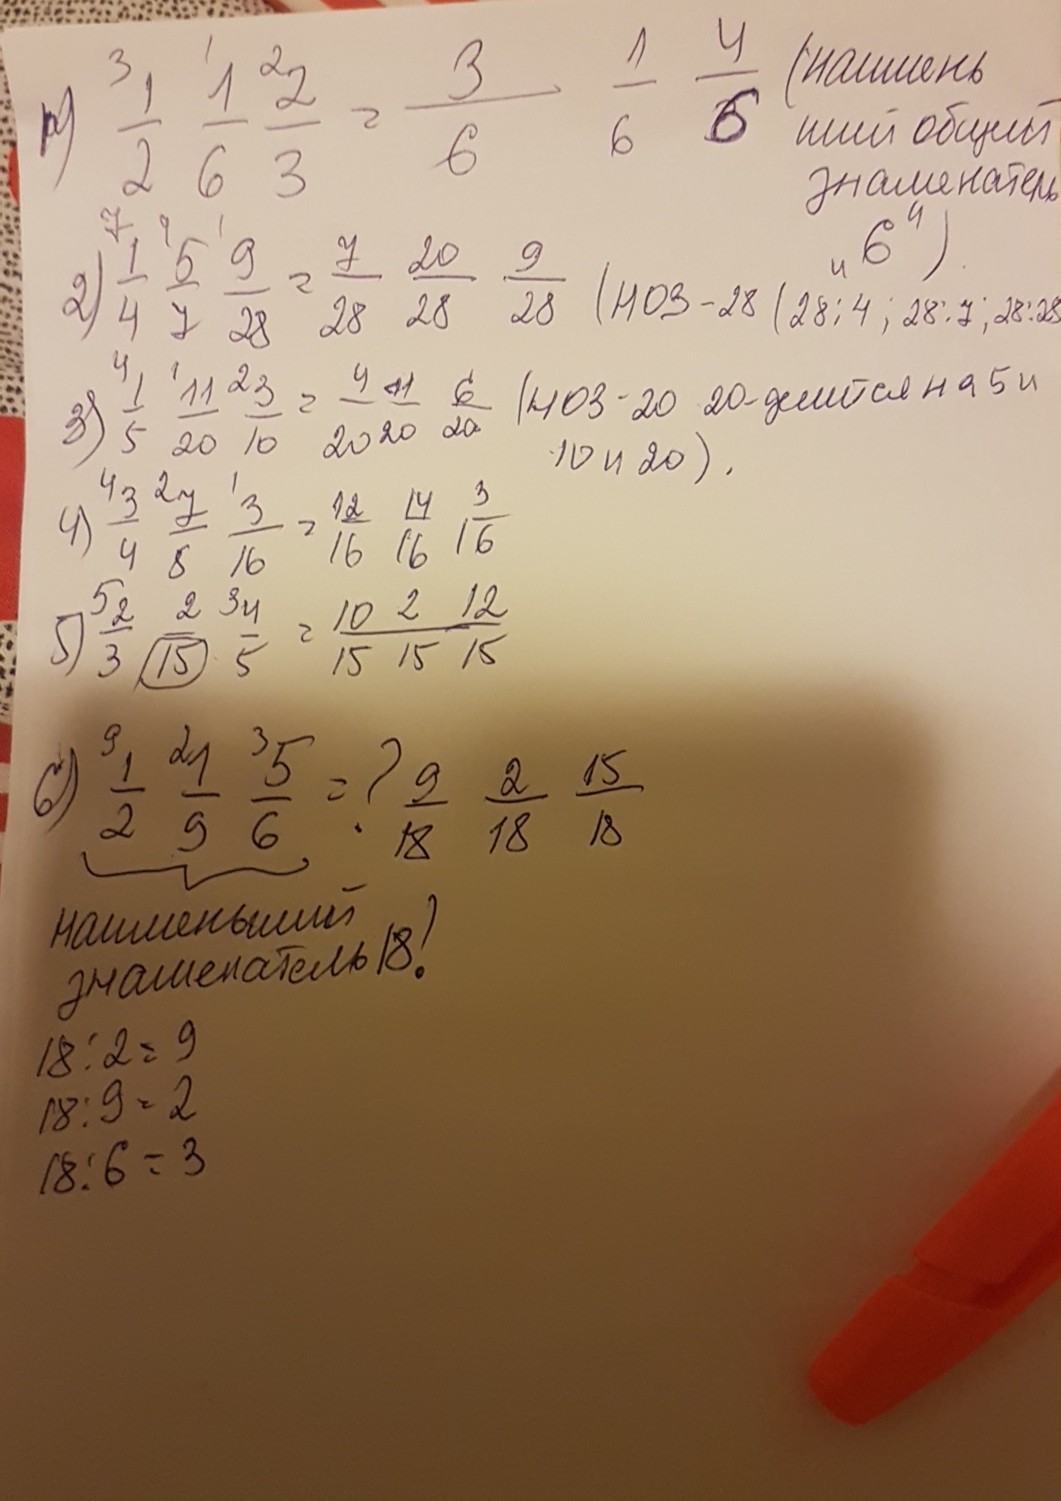 1) ³1/2 ¹1/6 ²2/3 = 3/6 1/6 4/6 (наимень
ший общий
знаменатель
"6")
2) ⁷1/4 ⁴5/7 ¹9/28 = 7/28 20/28 9/28 (НОЗ-28 (28:4; 28:7; 28:28
3) ⁴1/5 ¹11/20 ²3/10 = 4/20 11/20 6/20 (НОЗ-20 20-делится на 5 и
10 и 20).
4) ⁴3/4 ²7/8 ¹3/16 = 12/16 14/16 3/16
5) ⁵2/3 2/15 ³4/5 = 10/15 2/15 12/15
6) ⁹1/2 ²1/9 ³5/6 = ? 9/18 2/18 15/18
наименьший
знаменатель 18!
18:2=9
18:9=2
18:6=3